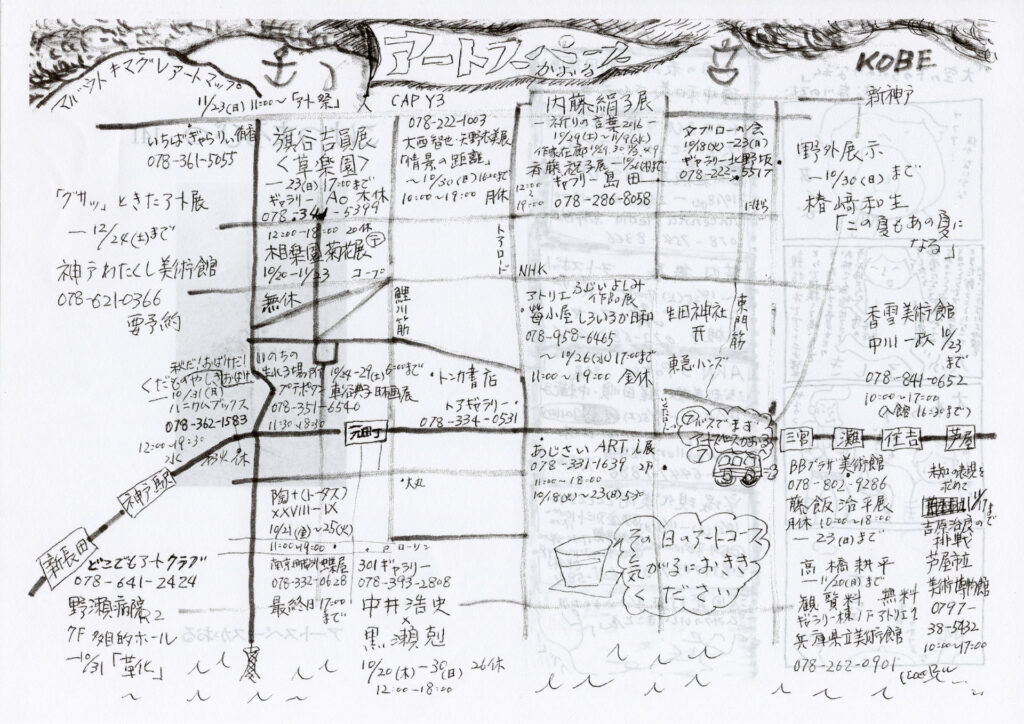 アートスペース
かおる
KOBE
新神戸
マドウトキマグレアートマップ
11/23(日)11:00〜「アト祭」
CAP Y3
いちばぎゃらりぃ侑香
078-361-5055
「グサッ」ときたアート展
—12/24(土)まで
神戸わたくし美術館
078-621-0366
要予約
旗谷吉員展
〈草楽園〉
—23(日)17:00まで
ギャラリーAO 木休
5399
12:00-18:00
相楽園菊花展
10/20-11/23
無休
078-222-1003
「情景の距離」
〜10/30(日)
10:00〜19:00 月休
鯉川筋
内藤絹子展
—祈りの言葉2016—
10/29(土)〜11/9(水)
ギャラリー島田
12:00
〜
19:00
078-286-8058
トアロード
NHK
タブローの会
10/18(火)〜23(日)
ギャラリー北野坂
078-222-5517
野外展示
—10/30(日)まで
椿崎和生
「この夏もあの夏に
なる」
ふじいよしみ
作品展
アトリエ
苺小屋 しろいろか日和
078-958-6465
〜10/26(水)17:00まで
11:00〜19:00 金休
生田神社
東門筋
東急ハンズ
香雪美術館
中川一政 10/23
まで
078-841-0652
10:00-17:00
(入館16:30まで)
秋だ!おばけだ!
くだものやしきおばけ
—10/31(月)
ハニカムブックス
078-362-1583
12:00-19:30
水
いのちの
生れる場所
プチポワ
078-351-6540
11:30-18:30
10/24-29(土)
日本画展
・トンカ書店
トアギャラリー
078-334-0531
元町
三宮
灘
住吉
芦屋
神戸駅
新長田
あじさい ART.i展
078-331-1639 2F
11:00-18:00
10/18(火)〜23(日)5:30
・大丸
陶+(トータス)
XXVIII-IX
10/21(金)〜25(火)
11:00〜19:00
蝶屋
078-332-0628
最終日17:00
まで
ローソン
301ギャラリー
078-393-2808
中井浩史
×
黒瀬剋
10/20(木)-30(日) 26休
12:00-18:00
その日のアートコース
気がるにおきき
ください
どこでもアートクラブ
078-641-2424
野瀬病院
7F 多目的ホール
—10/31「革化」
BBプラザ美術館
078-802-9286
藤飯治平展
月休 10:00〜18:00
—23(日)まで
高橋耕平
—11/20(日)まで
観覧料 無料
ギャラリー棟1Fアトリエ1
兵庫県立美術館
078-262-0901
未知の表現を
求めて
吉原治良の
挑戦
芦屋市立
美術博物館
0797-
38-5432
10:00-17:00